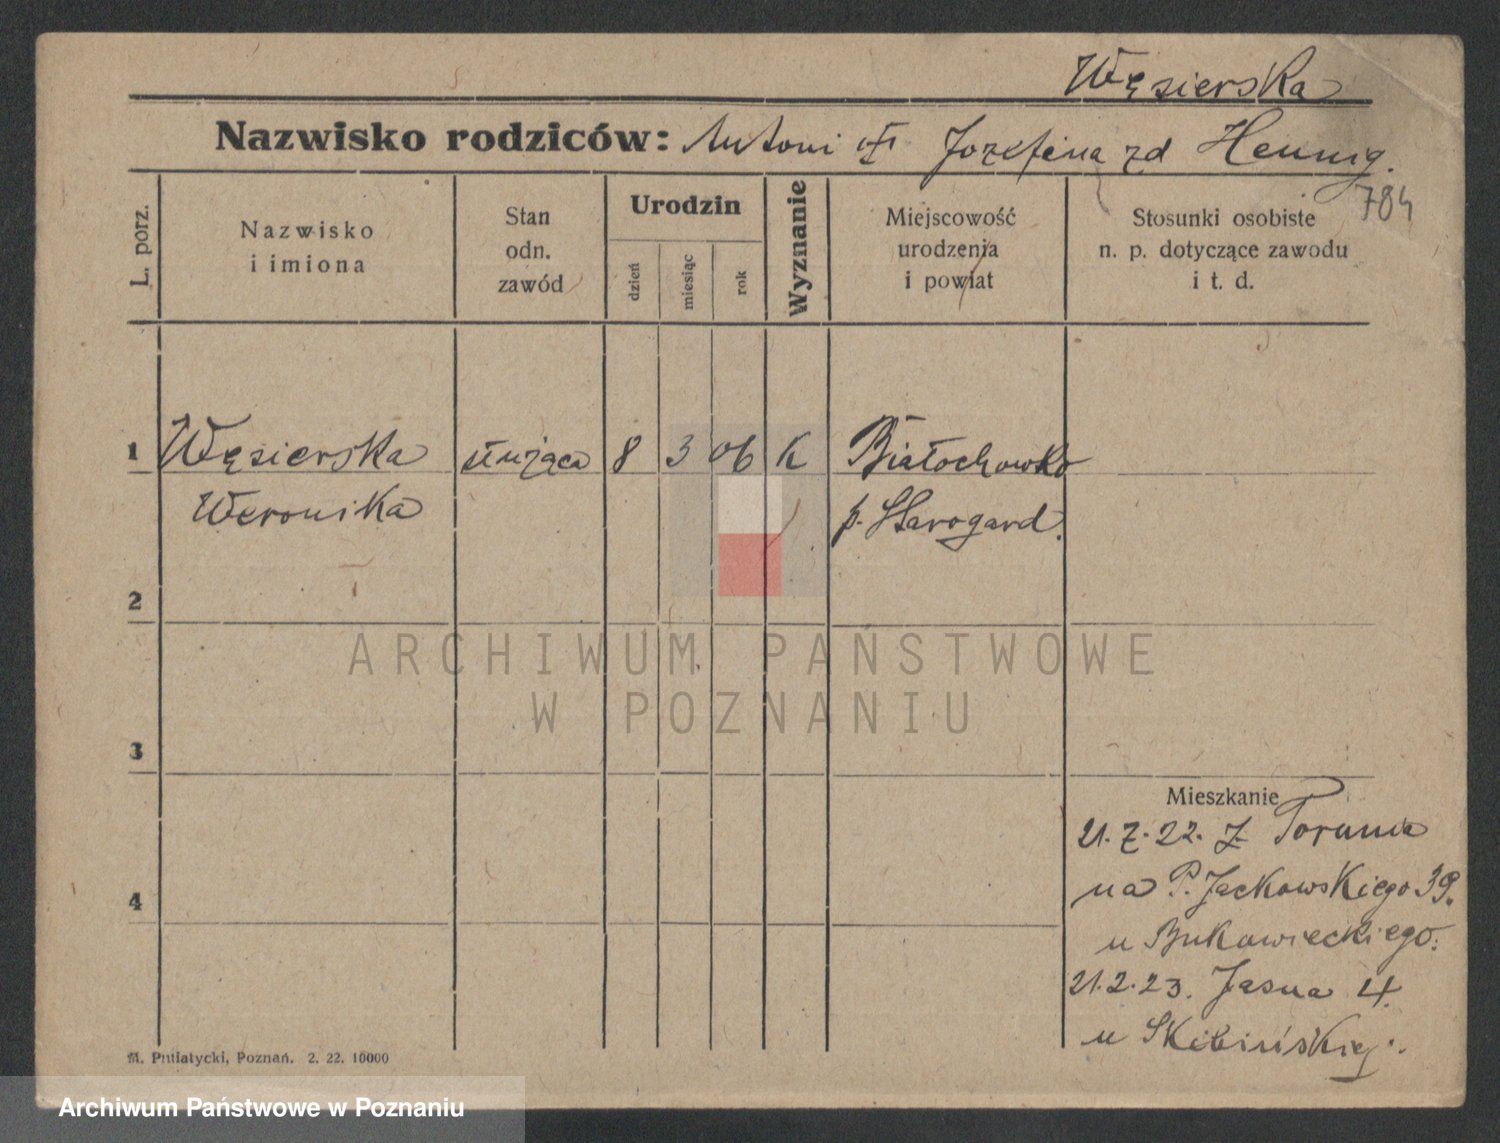 Węsierska
Nazwisko rodziców: Antoni i Jozefina zd Hennig.
784
L. porz.
Nazwisko
i imiona
Stan
odn.
zawód
Urodzin
dzień
miesiąc
rok
Wyznanie
Miejscowość
urodzenia
i powiat
Stosunki osobiste
n. p. dotyczące zawodu
i t. d.
1 Węsierska służąca 8 3 06 K Białochowko
Weronika p. Starogard.
2
ARCHIWUM PAŃSTWOWE
W POZNANIU
3
Mieszkanie
21. 7. 22. z Torunia
na P. Jackowskiego 39.
4
u Bukowieckiego.
21. 2. 23. Jasna 4.
u Skibińskiej.
M. Putiatycki, Poznań. 2. 22. 10000
Archiwum Państwowe w Poznaniu